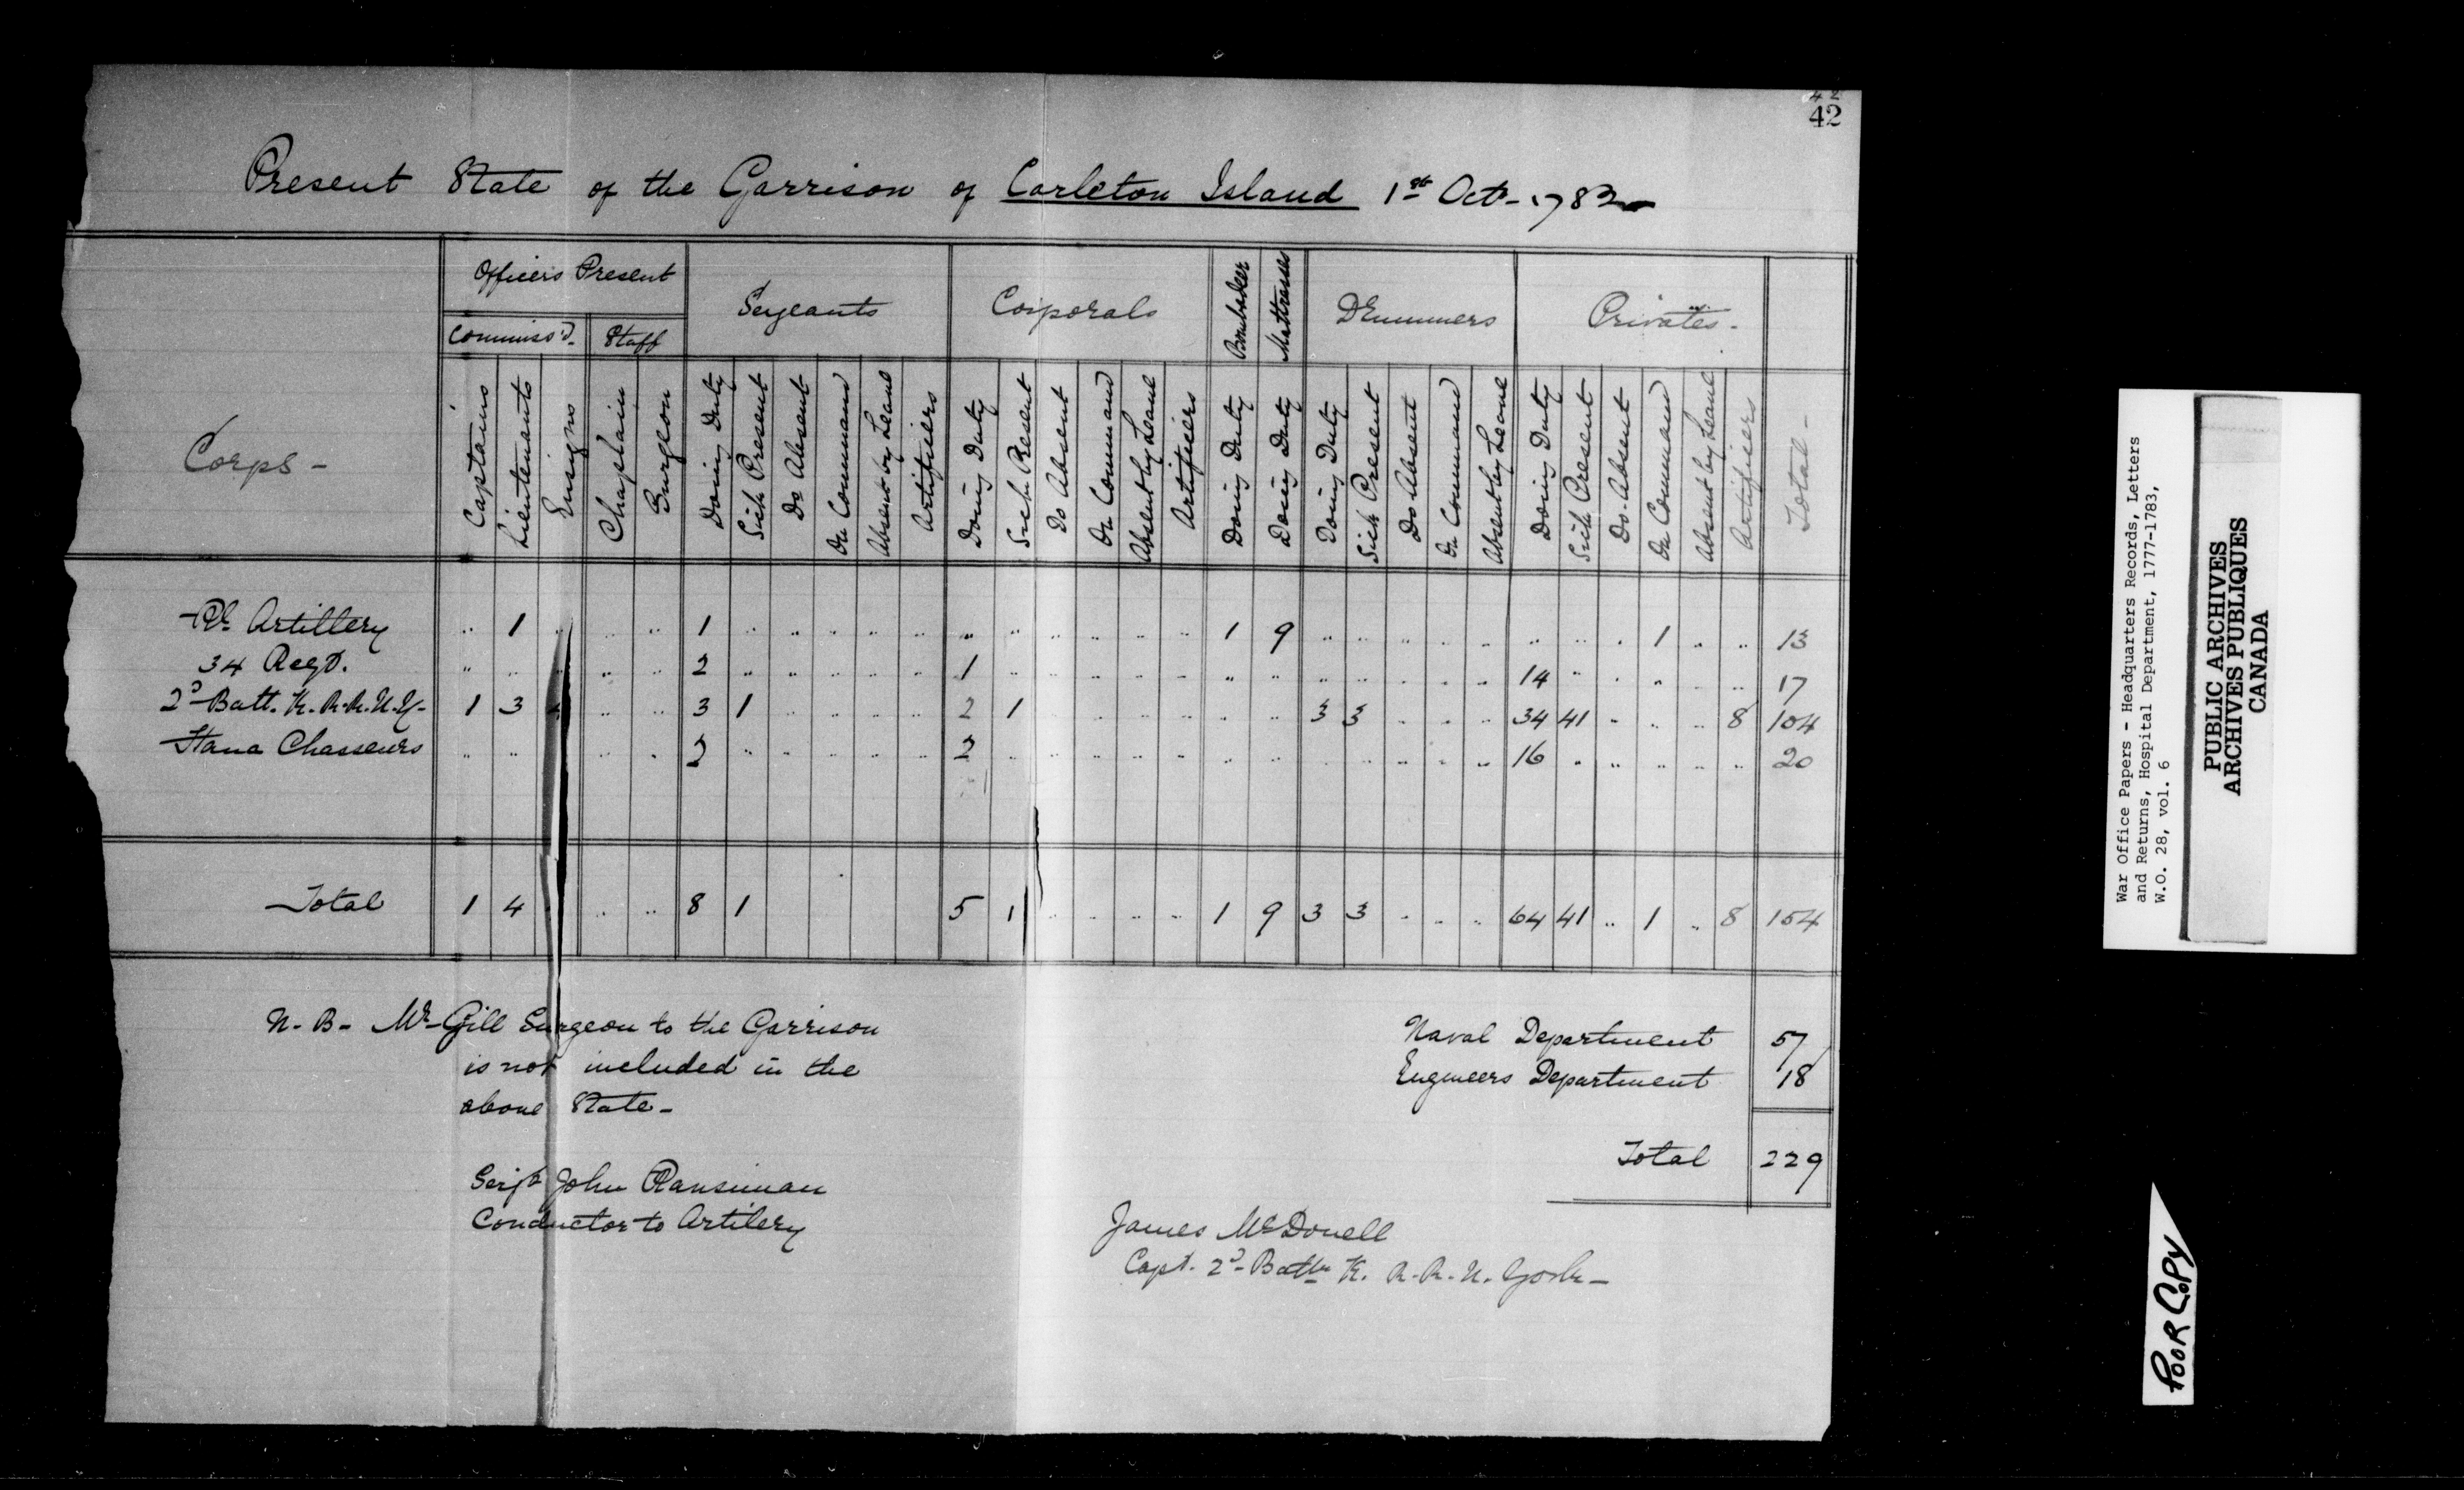 42
42
Present State of the Garrison of Carleton Island 1st Oct - 1782
Corps -
Officers Present
Commiss'd - Staff
Sergeants
Corporals
Bombadeer
Mattrosses
Drummers
Privates -
Captains
Lieutenants
Ensigns
Chaplain
Surgeon
Doing Duty
Sick Present
Do Absent
On Command
Absent by Leave
Artifiers
Doing Duty
Sick Present
Do Absent
On Command
Absent by Leave
Artifiers
Doing Duty
Doing Duty
Doing Duty
Sick Present
Do Absent
On Command
Absent by Leave
Doing Duty
Sick Present
Do. Absent
On Command
Absent by Leave
Artifiers
Total -
Rl. Artillery 1 1 1 9 1 13
34 Regt. 2 1 14 17
2d Batt. K. R. R. N. Y - 1 3 3 1 2 1 3 3 34 41 8 104
Hana Chasseurs 2 2 16 20
Total 1 4 8 1 5 1 1 9 3 3 64 41 1 8 154
N. B - Mr Gill Surgeon to the Garrison
is not included in the
above State -
Naval Department 57
Engineers Department 18
Total 229
Serjt John Ransiman
Conductor to Artilery
James McDonell
Capt. 2d Battn K. R. R. N. York -
War Office Papers - Headquarters Records, Letters
and Returns, Hospital Department, 1777-1783,
W.O. 28, vol. 6
PUBLIC ARCHIVES
ARCHIVES PUBLIQUES
CANADA
POOR COPY